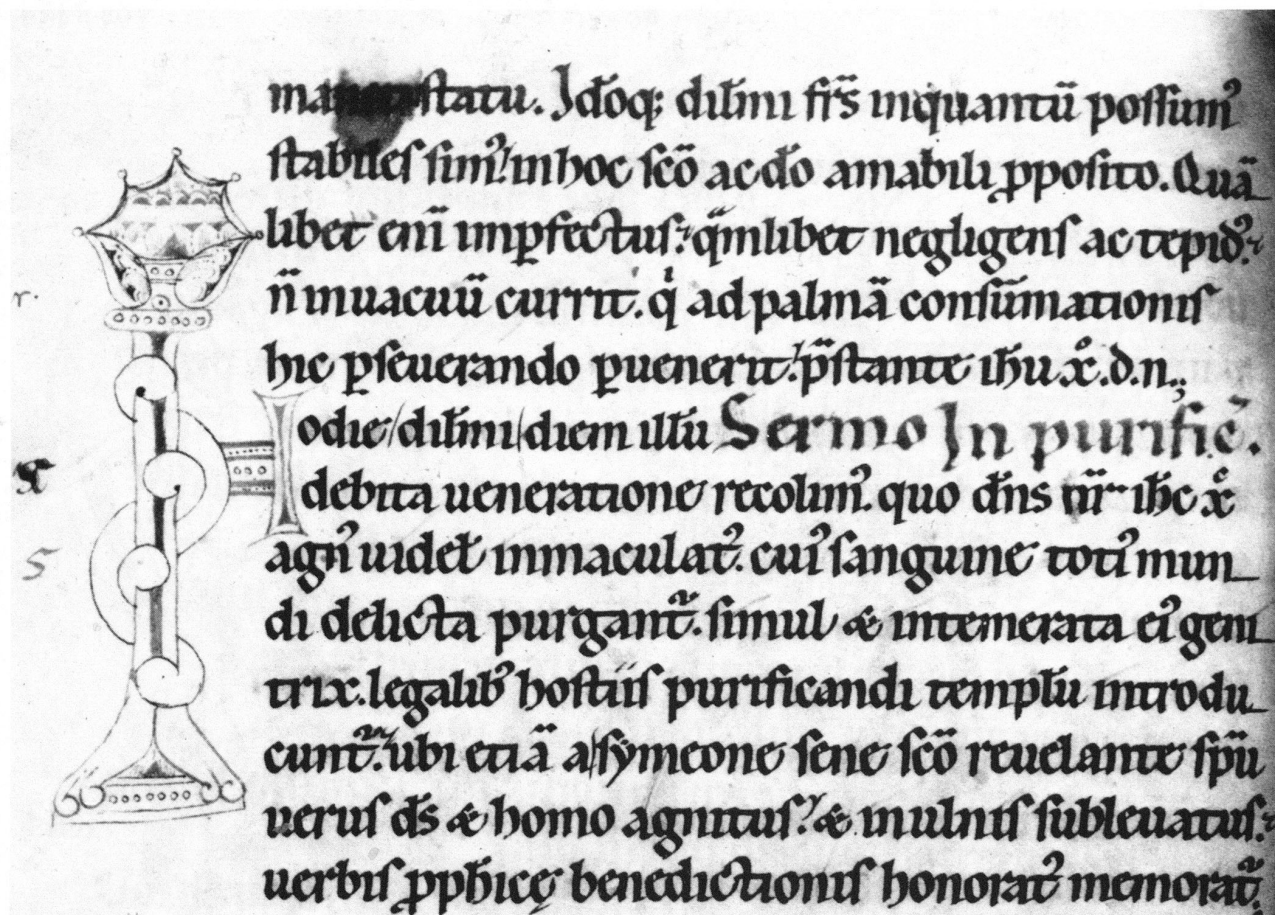 statu. Idōq; dil̄mi fr̄s inquantū possum᾽
stabiles sim᾽ in hoc scō ac dō amabili p̱posito. Quā
libet enī imp̱fectus: q̄mlibet negligens ac tepid᾽
n̄ in uacuū currit. qͥ ad palmā consūmationis
hic p̱seuerando p̱uenerit: p̄stante ih̄u xͦ. d. n.;
Hodie dil̄mi diem illū Sermo In purific̄.
debita ueneratione recolim᾽. quo dn̄s nr̄ ih̄c xͨ
agn᾽ uidet̄ immaculat᾽. cui᾽ sanguine toti᾽ mun
di delicta purgant᷑. simul & intemerata ei᾽ geni
trix. legalib᾽ hostiis purificandi templū introdu
cunt᷑. ubi etiā a symeone sene scō reuelante sp̄u
uerus ds̄ & homo agnitus: & in ulnis subleuatus:
uerbis p̱ph̄icę benedictionis honorat᾽ memorat᷑.